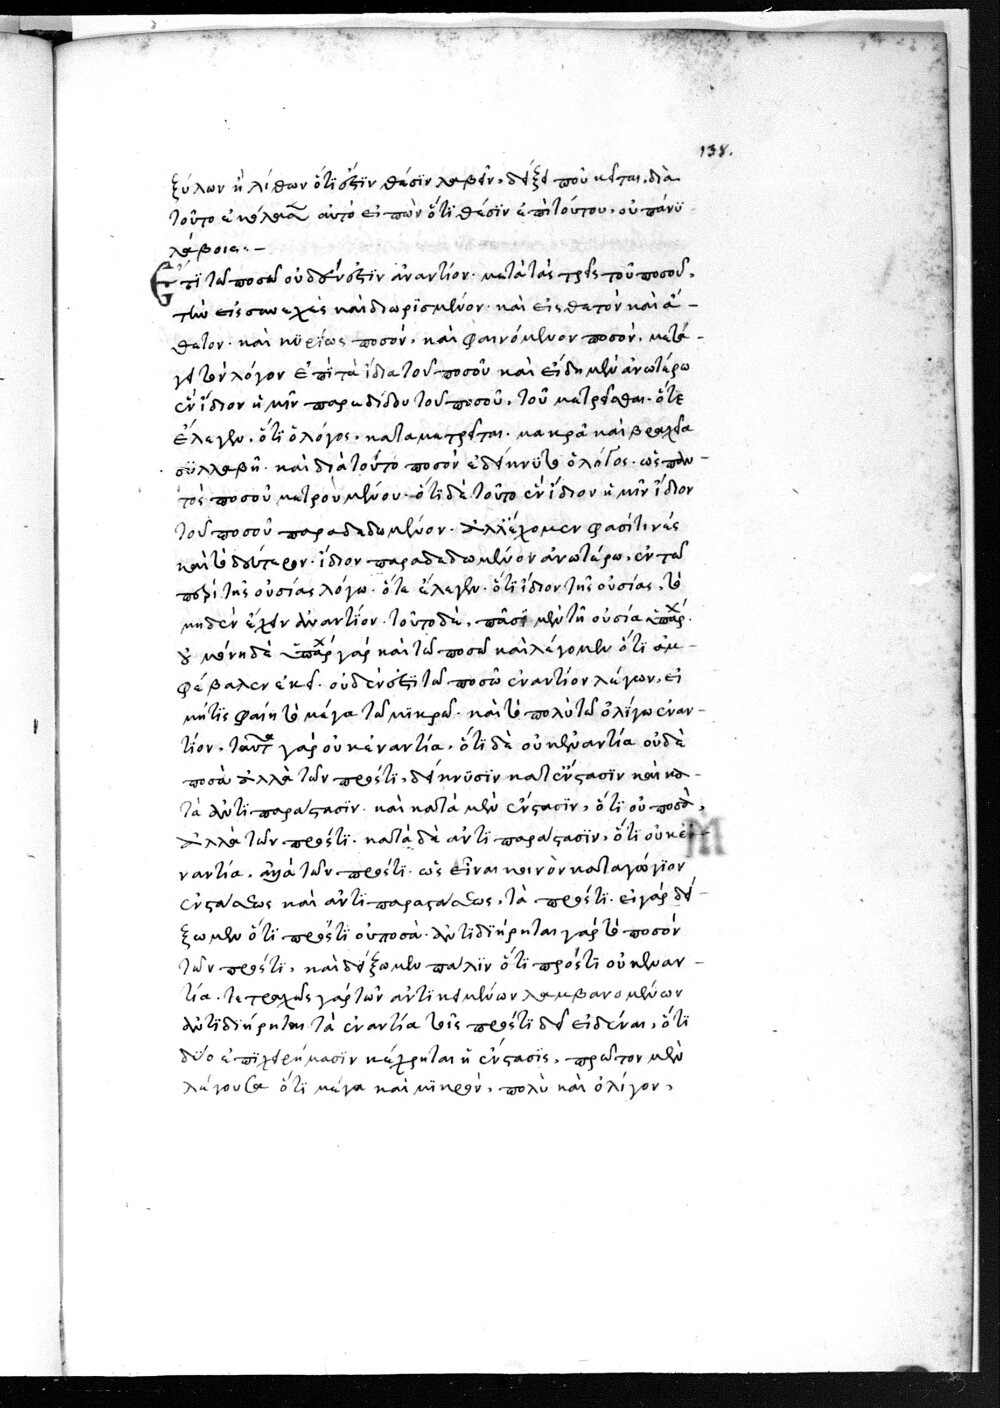 138.
ξύλων ἢ λίθων ὅτι ἐστὶν θέσϊν λαβεῖν, δεῖξαι ποῦ κεῖται. διὰ
τοῦτο αὐτὸ εἰπὼν ὅτϊ θέσϊν ἐπὶ τούτου, οὐ πάνϋ
λάβοις.—
Ἔτϊ τῶ ποσῶ οὐδέν ἐστϊν ἐναντίον· μετὰ τὰς τρεῖς τοῦ ποσοῦ,
τὴν εἰς συνεχὲς καὶ διωρϊσμένον· καὶ εἰς θετὸν καὶ ἄ-
θετον· καὶ κϋρίως ποσόν, καὶ φαινόμενον ποσὸν, μετά-
γει τὸν λόγον ἐπὶ τὰ ἴδια τοῦ ποσοῦ καὶ εἴδη μὲν ἀνωτέρω
ἓν ἴδιον ἡμῖν παραδίδου τοῦ ποσοῦ, τοῦ μετρεῖσθαι· ὅτε
ἔλεγεν, ὅτι ὁ λόγος, καταμετρεῖται· μακρᾶ καὶ βραχεῖα
σϋλλαβῆ· καὶ διὰ τοῦτο ποσὸν ἐδείκνϋτο ὁ λόγος· ὡς παν-
τὸς ποσοῦ μετρουμένου· ὅτι δὲ τοῦτο ἓν ἴδιον ἡμῖν ἴδιον
τοῦ ποσοῦ παραδεδομένον· ἀλλ' ἔχομεν φασί τινὲς
καὶ τὸ δεύτερον· ἴδιον παραδεδομένον ἀνωτέρω, ἐν τῶ
περὶ τῆς οὐσίας λόγω· ὅτε ἔλεγεν· ὅτι ἴδιον τῆς οὐσίας, τὸ
μηδὲν ἔχειν ἐναντίον· τοῦτο δὲ, πᾶσι μὲν τῆ οὐσία ὑπάρχ·
οὐ μόνη δὲ ὑπάρχ γὰρ καὶ τῶ ποσῶ καὶ λέγομεν ὅτι ἀμ-
φέβαλεν ἐκεῖ· οὐδέν ἐστϊ τῶ ποσῶ ἐναντίον λέγων, εἰ
μήτις φαίη τὸ μέγα τῶ μϊκρῶ· καὶ τὸ πολὺ τῶ ὀλίγω ἐναν-
τίον, ταῦτα γὰρ οὐκ ἐναντία, ὅτι δὲ οὐκ ἐναντία οὐδὲ
ποσὰ ἀλλὰ τῶν πρός τι, δείκνϋσϊν κατ' ἔνστασϊν καὶ κα-
τὰ ἀντιπαράστασϊν· καὶ κατὰ μὲν ἔνστασιν, ὅτι οὐ ποσὰ,
ἀλλὰ τῶν πρός τι· κατὰ δὲ ἀντιπαράστασιν, ὅτι οὐκ ἐ-
ναντία, ἀλλὰ τῶν πρός τι· ὡς εἶναι κοινὸν καταγώγϊον
ἐνστάσεως καὶ ἀντιπαραστάσεως, τὰ πρός τϊ· εἰ γὰρ δεί-
ξωμεν ὅτϊ πρός τϊ οὐ ποσὰ· ἀντιδϊήρηται γὰρ τὸ ποσὸν
τῶν πρός τϊ, καὶ δείξωμεν πάλϊν ὅτϊ πρός τϊ οὐκ ἐναν-
τία· τετραχῶς γὰρ τῶν ἀντικειμένων λαμβανομένων
ἀντιδϊήρηται τὰ ἐναντία τοῖς πρός τϊ δεῖ εἰδέναι, ὅτϊ
δϋο ἐπϊχειρήμασϊν κέχρηται ἡ ἔνστασϊς, πρῶτον μὲν
λέγουσα ὅτϊ μέγα καὶ μϊκρὸν, πολὺ καὶ ὀλίγον,